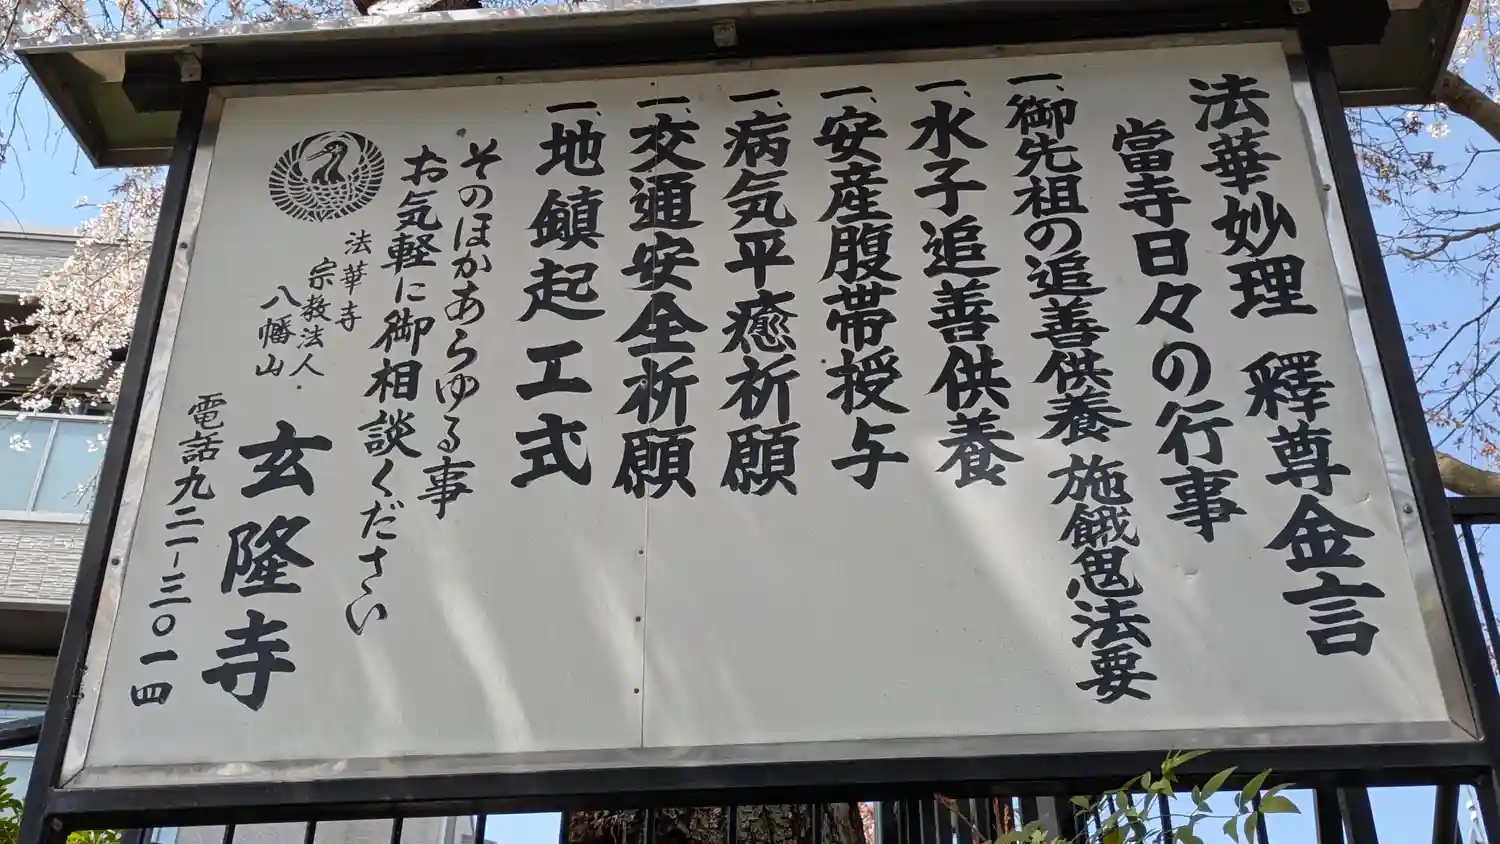 法華妙理 釋尊金言
當寺日々の行事
一、御先祖の追善供養 施餓鬼法要
一、水子追善供養
一、安産腹帯授与
一、病気平癒祈願
一、交通安全祈願
一、地鎮起工式
そのほかあらゆる事
お気軽に御相談ください
法華寺
宗教法人・
八幡山
玄隆寺
電話九二一-三〇一四